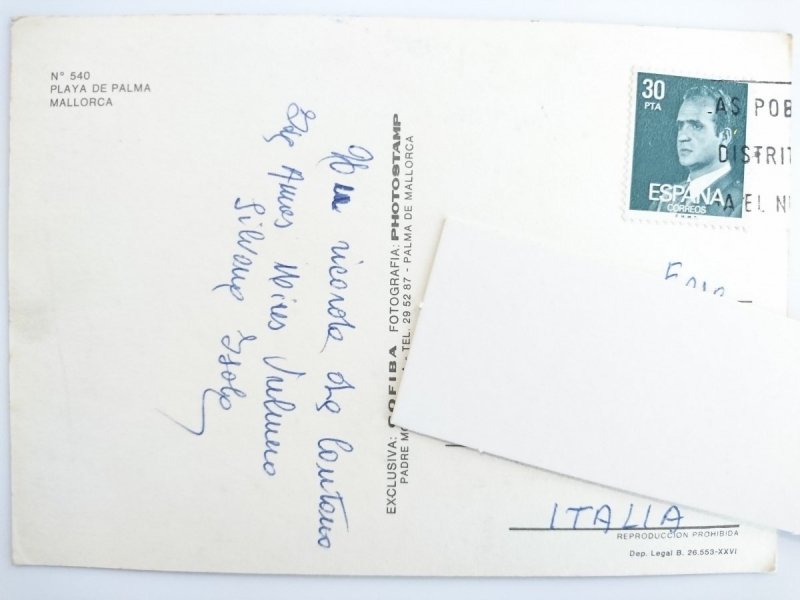 N° 540
PLAYA DE PALMA
MALLORCA
Un ricordo da lontano
Silvano Isola
EXCLUSIVA: COFIBA FOTOGRAFIA: PHOTOSTAMP
PADRE MO - TEL. 29 52 87 - PALMA DE MALLORCA
30
PTA
ESPAÑA
CORREOS
AS POB
DISTRIT
A EL N
ITALIA
REPRODUCCION PROHIBIDA
Dep. Legal B. 26.553-XXVI